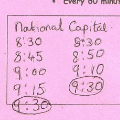 Every 60 minut
National Capital
8:30 8:30
8:45 8:50
9:00 9:10
9:15 9:30
9:30